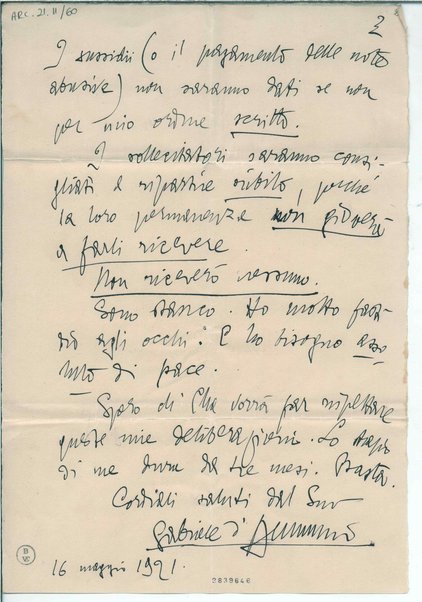 ARC. 21. II/60
2
I sussidii (o il pagamento delle note
abusive) non saranno dati se non
per mio ordine scritto.
I sollecitatori saranno consi-
gliati a ripartire subito, perché
la loro permanenza non gioverà
a farli ricevere.
Non riceverò nessuno.
Sono stanco. Ho molto fasti-
dio agli occhi. E ho bisogno asso-
luto di pace.
Spero ch'Ella vorrà far rispettare
queste mie deliberazioni. Lo
di me dura da tre mesi. Basta.
Cordiali saluti dal Suo
Gabriele d'Annunzio
16 maggio 1921.
B
VE
2839646